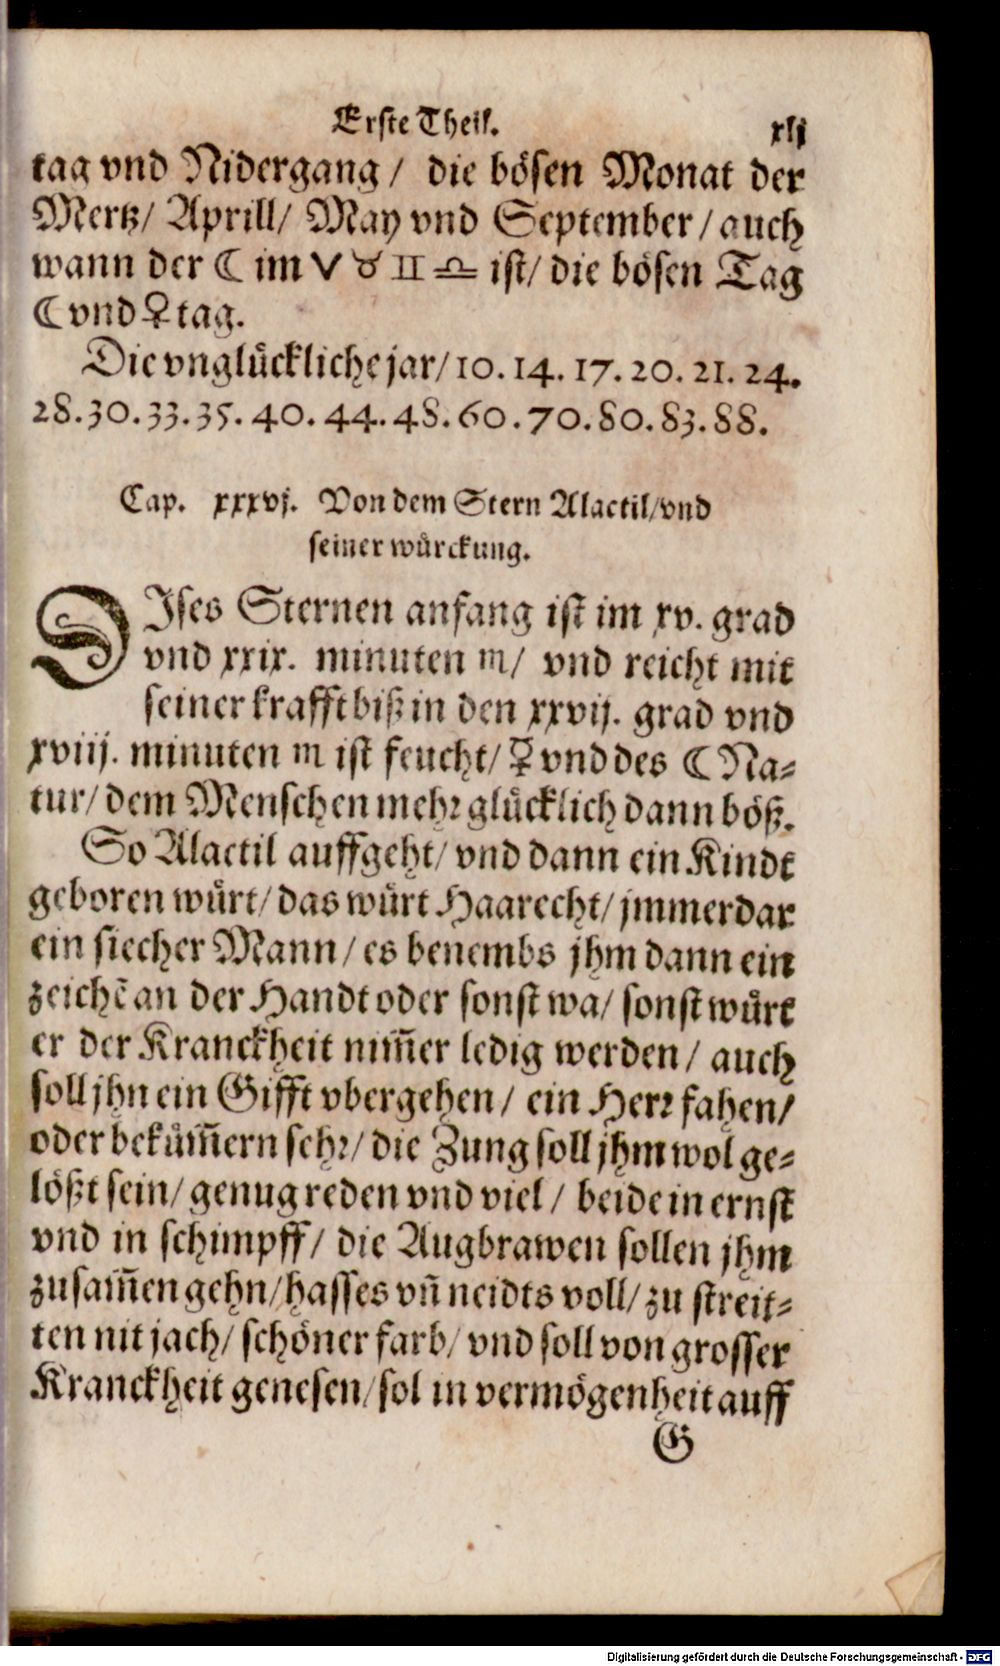 Erste Theil. xlj
tag vnd Nidergang / die bösen Monat der
Mertz/ Aprill/ May vnd September / auch
wann der ☾ im ♈ ♉ ♊ ♎ ist/ die bösen Tag
☾ vnd ♀ tag.
Die vnglückliche jar/ 10. 14. 17. 20. 21. 24.
28. 30. 33. 35. 40. 44. 48. 60. 70. 80. 83. 88.
Cap. xxxvj. Von dem Stern Alactil/ vnd
seiner würckung.
DJses Sternen anfang ist im xv. grad
vnd xxix. minuten ♏/ vnd reicht mit
seiner krafft biß in den xxvij. grad vnd
xviij. minuten ♏ ist feucht/ ☿ vnd des ☾ Na-
tur/ dem Menschen mehr glücklich dann böß.
So Alactil auffgeht/ vnd dann ein Kindt
geboren würt/ das würt Haarecht/ jmmerdar
ein siecher Mann / es benembs jhm dann ein
zeichẽ an der Handt oder sonst wa/ sonst würt
er der Kranckheit nim̃er ledig werden / auch
soll jhn ein Gifft vbergehen / ein Herr fahen/
oder beküm̃ern sehr/ die Zung soll jhm wol ge-
lößt sein/ genug reden vnd viel / beide in ernst
vnd in schimpff/ die Augbrawen sollen jhm
zusam̃en gehn/ hasses vñ neidts voll/ zu streit-
ten nit jach/ schöner farb/ vnd soll von grosser
Kranckheit genesen/ sol in vermögenheit auff
G
Digitalisierung gefördert durch die Deutsche Forschungsgemeinschaft - DFG